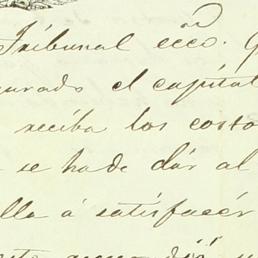 Tribunal ecco. G
gurado el capital
reciba los costo
se ha de dár al
lla á satisfacér